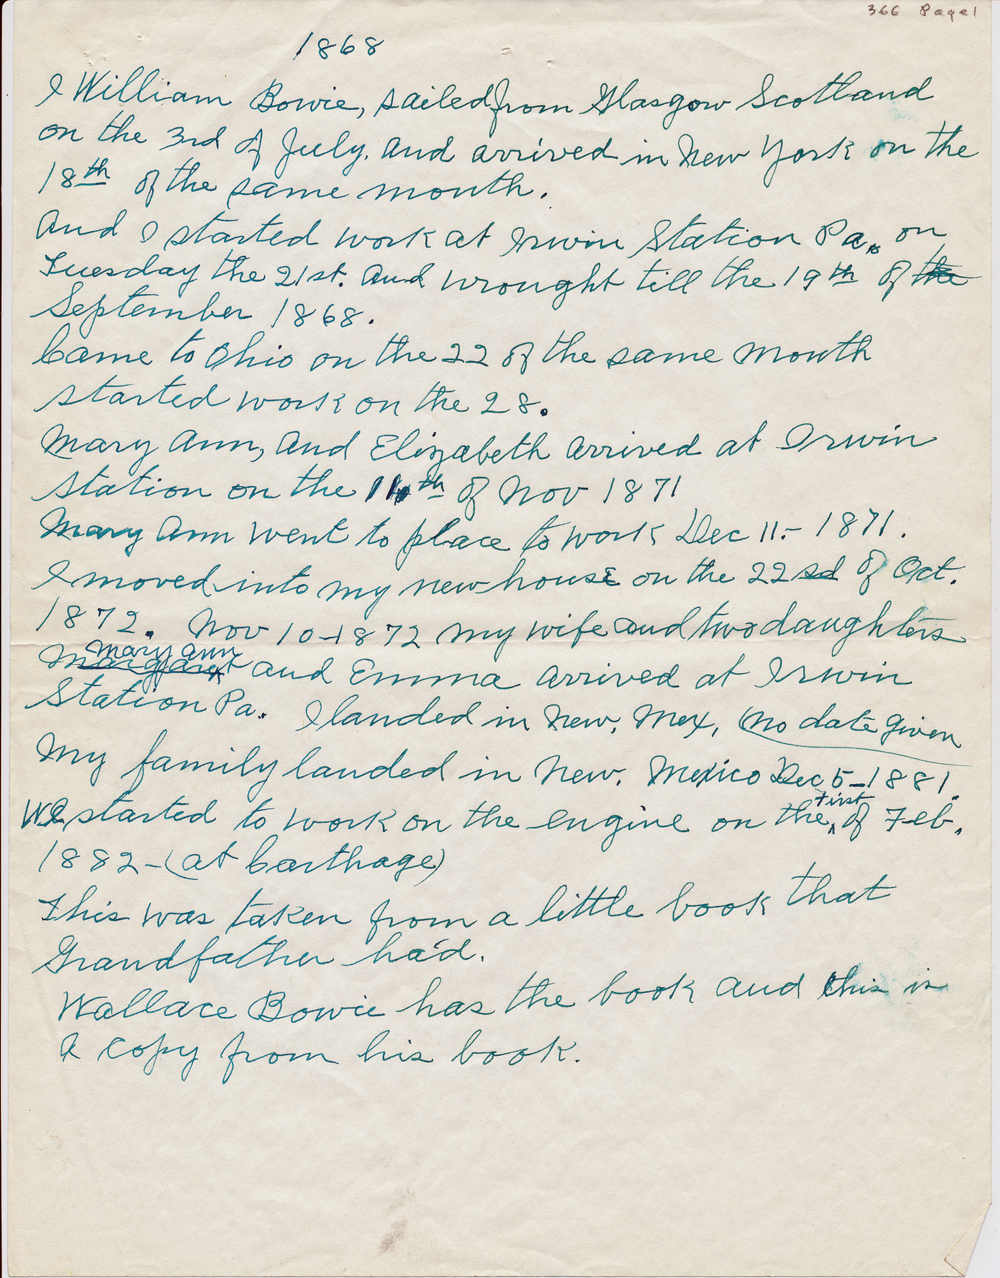 366 Page 1
1868
I William Bowie, sailed from Glasgow Scotland
on the 3rd of July. and arrived in New York on the
18th of the same month.
And I started work at Irwin Station Pa., on
Tuesday the 21st. and wrought till the 19th of the
September 1868.
Came to Ohio on the 22 of the same month
started work on the 28.
Mary Ann, and Elizabeth arrived at Irwin
Station on the of Nov 1871
Mary Ann went to place to work Dec 11.- 1871.
I moved into my new house on the 22 sd of Oct.
1872. Nov 10-1872 my wife and two daughters
Mary Ann
Margaret and Emma arrived at Irwin
Station Pa. I landed in New. Mex, (no date given
My family landed in New. Mexico Dec 5-1881.
first
We started to work on the engine on the of Feb.
1882-(at Carthage)
This was taken from a little book that
Grandfather had.
Wallace Bowie has the book and this is
A copy from his book.